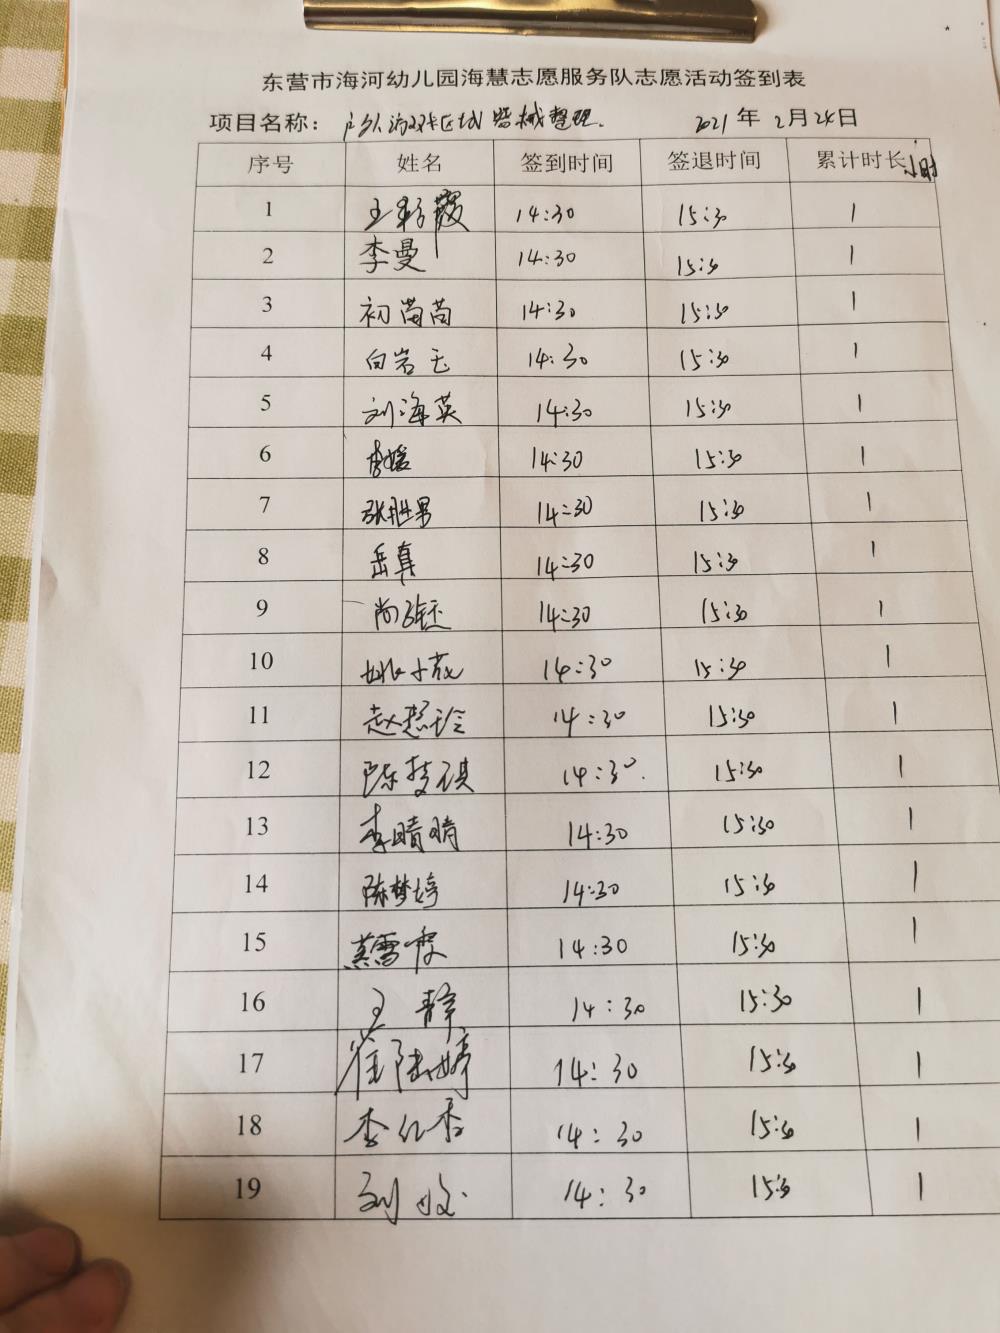 东营市海河幼儿园海慧志愿服务队志愿活动签到表
项目名称： 户外游戏区域器械整理. 2021 年 2月24日
序号 姓名 签到时间 签退时间 累计时长 小时
1 王彩霞 14:30 15:30 1
2 李曼 14:30 15:30 1
3 初苗苗 14:30 15:30 1
4 白岩玉 14:30 15:30 1
5 刘海英 14:30 15:30 1
6 14:30 15:30 1
7 张胜男 14:30 15:30 1
8 岳真 14:30 15:30 1
9 尚 钰 14:30 15:30 1
10 姚小 14:30 15:30 1
11 赵 玲 14:30 15:30 1
12 陈 琪 14:30 15:30 1
13 李晴晴 14:30 15:30 1
14 陈梦婷 14:30 15:30 1
15 雪 14:30 15:30 1
16 王静 14:30 15:30 1
17 崔陆婷 14:30 15:30 1
18 李红香 14:30 15:30 1
19 刘 14:30 15:30 1